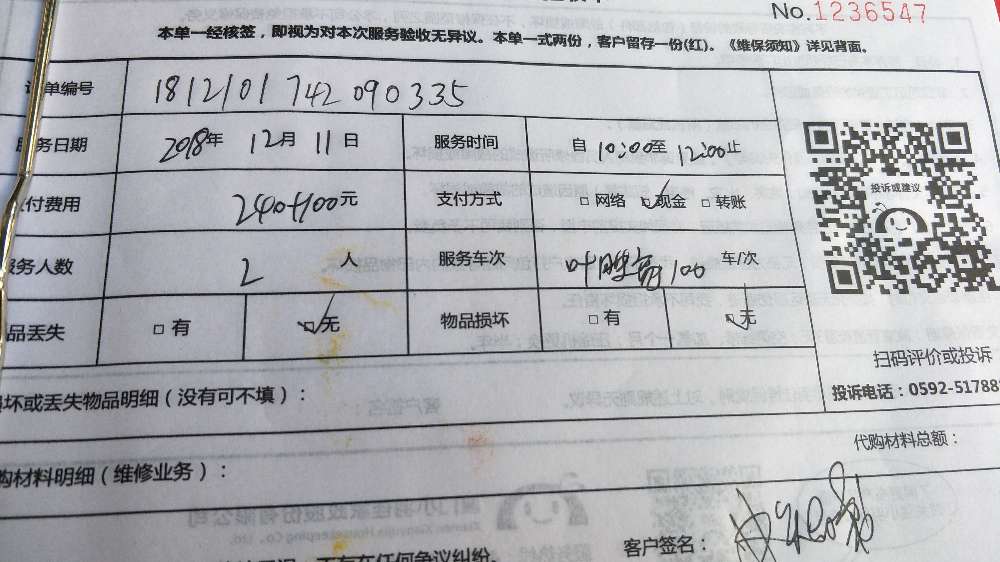 No.1236547
本单一经核签，即视为对本次服务验收无异议。本单一式两份，客户留存一份(红)。《维保须知》详见背面。
单编号 1812101742090335
务日期 2018年 12月 11日 服务时间 自 10:00至 12:00止
付费用 240+100元 支付方式 □ 网络 ☑ 现金 □ 转账
服务人数 2 人 服务车次 100 车/次
品丢失 □ 有 ☑ 无 物品损坏 □ 有 ☑ 无
投诉或建议
扫码评价或投诉
投诉电话：0592-51788
坏或丢失物品明细（没有可不填）：
代购材料总额：
购材料明细（维修业务）：
客户签名：
不存在任何争议纠纷。